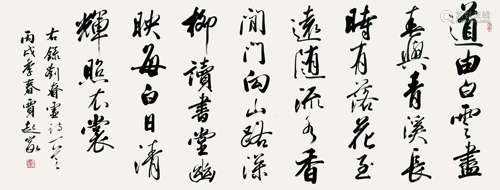 道由白雲盡
春與青溪長
時有落花至
遠随流水香
閒門向山路深
柳讀書堂幽
映每白日清
輝照衣裳
右錄劉昚虛詩一首
丙戌季春賈起家